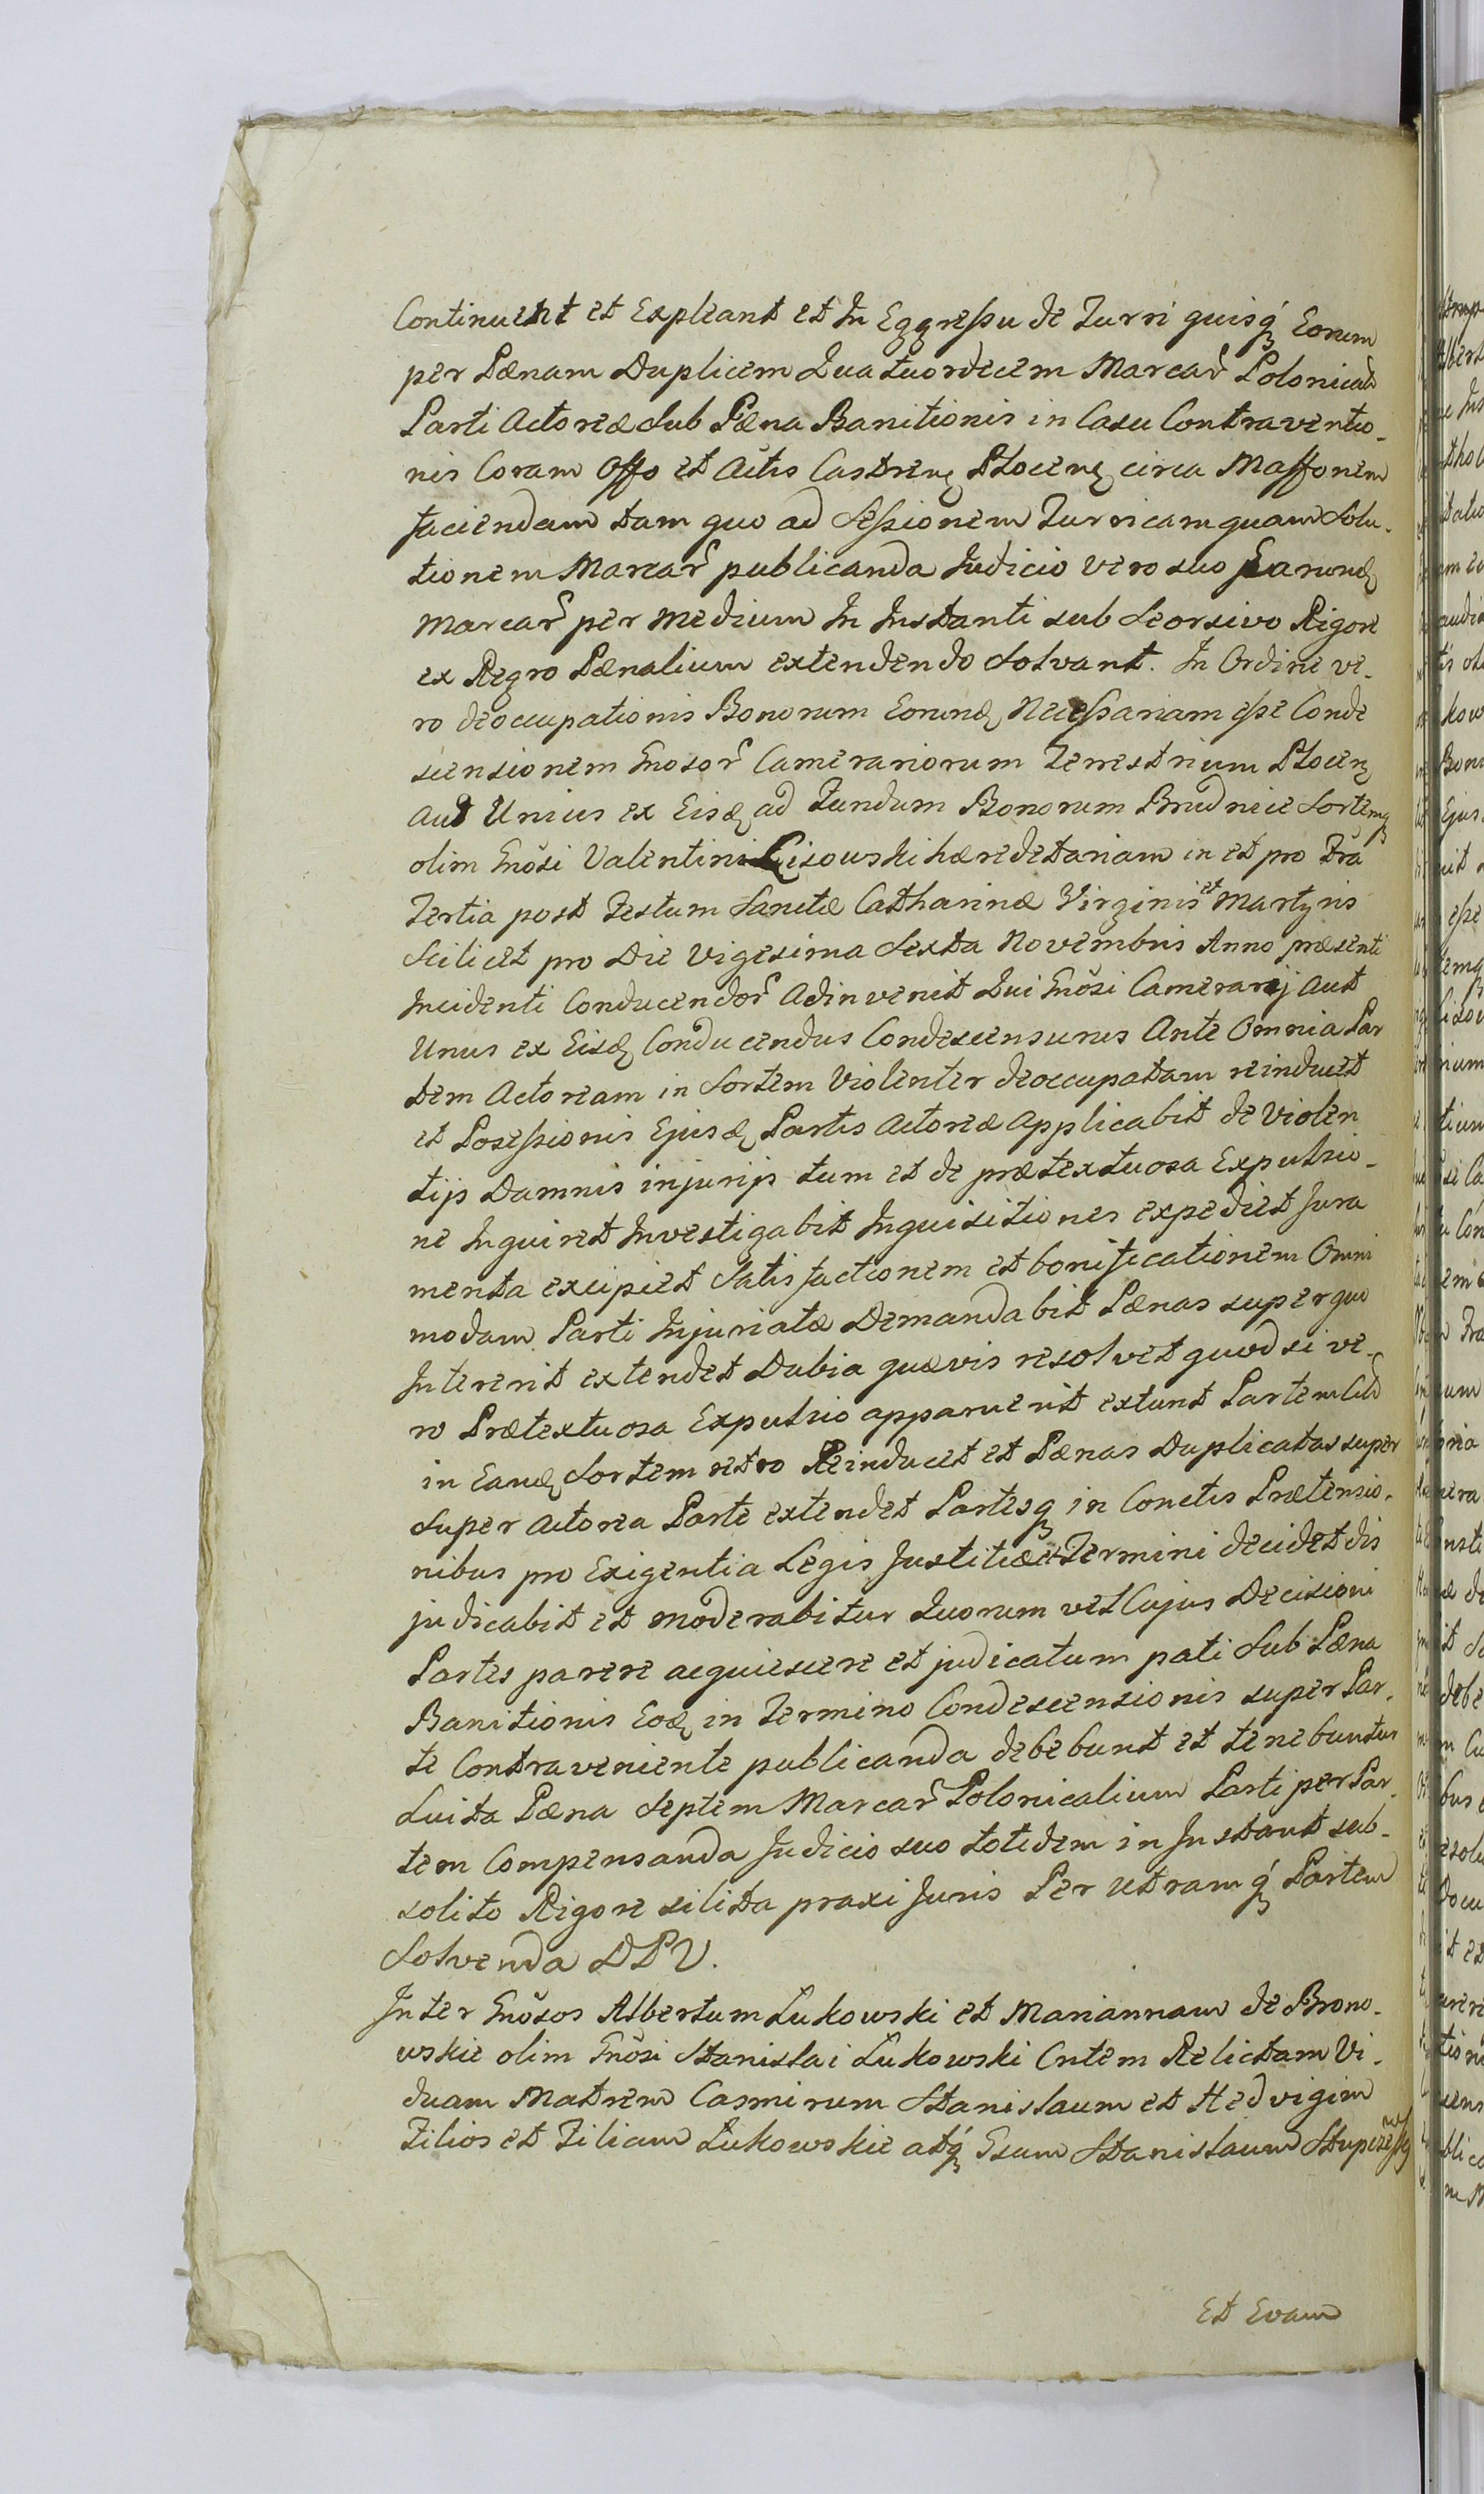 Continuent et Expleant et In Eggressu de Turri quisq́ꝫ Eorum
per Pænam Duplicem Quatuordecem Marcar̃ Polonical̃
Parti Actoreæ sub Pæna Banitionis in Casu Contraventio-
nis Coram Offo et Actis Castrenꝫ Plocenꝫ circa Maffonem
faciendam tam quo ad sessionem Turricam quam Solu-
tionem Marcar̃ publicanda Judicio vero suo Earundꝫ
Marcar̃ per Medium In Instanti sub Seorsivo Rigore
ex Regro Pænalium extendendo Solvant. In Ordine ve-
ro deoccupationis Bonorum Eorundꝫ Necessariam esse Conde
scensionem Gnosor̃ Camerariorum Terrestrium Plocenꝫ
aut Unius ex Eisdꝫ ad Fundum Bonorum Brudnice Sortemqꝫ
olim Gnõsi Valentini Lisowski hæredetariam in et pro Fra
Tertia post Festum Sanctæ Catharinæ Virginis et Martyris
Scilicet pro Die Vigesima Sexta Novembris Anno præsenti
Incidenti Conducendor̃ Adinvenit Qui Gnõsi Camerarij Aut
Unus ex Eisdꝫ Conducendus Condescensurus Ante Omnia Par
tem Actoream in Sortem Violenter deoccupatam reinducet
et Posessionis Ejusdꝫ Partis Actoreæ Applicabit de Violen
tijs Damnis injurijs tum et de prætextuosa Expulsio-
ne Inquiret Investigabit Inquisitiones expediet Jura
menta excipiet Satisfactionem et bonificationem Omni
modam Parti Injuriatæ Demandabit Pænas super quo
Intererit extendet Dubia quævis resolvet quod si ve-
ro Prætextuosa Expulsio apparuerit extunt Partem Citd
in Eandꝫ Sortem retro Reinducet et Pænas Duplicatas super
Super Actorea Parte extendet Partesqꝫ in Conctis Prætensio-
nibus pro Exigentia Legis Justitiæ et Termini decidet dis
judicabit et moderabitur Quorum vel Cujus Decisioni
Partes parere acquiescere et judicatum pati Sub Pæna
Banitionis Eodꝫ in Termino Condescensionis super Par-
te Contraveniente publicanda debebunt et tenebuntur
Luita Pæna Septem Marcar̃ Polonicalium Parti per Par-
tem Compensanda Judicio suo totidem in Instant sub-
solito Rigore silita praxi Juris Per Utramq́ꝫ Partem
Solvenda DPV.
Inter Gnõsos Albertum Lukowski et Mariannam de Brono-
wskie olim Gnõsi Stanislai Lukowski Cntem Relictam Vi-
duam Matrem Casmirum Stanislaum et Hedvigim
Filios et Filiam Lukowskie atq́ꝫ Gsum Stanislaum
Et Evam